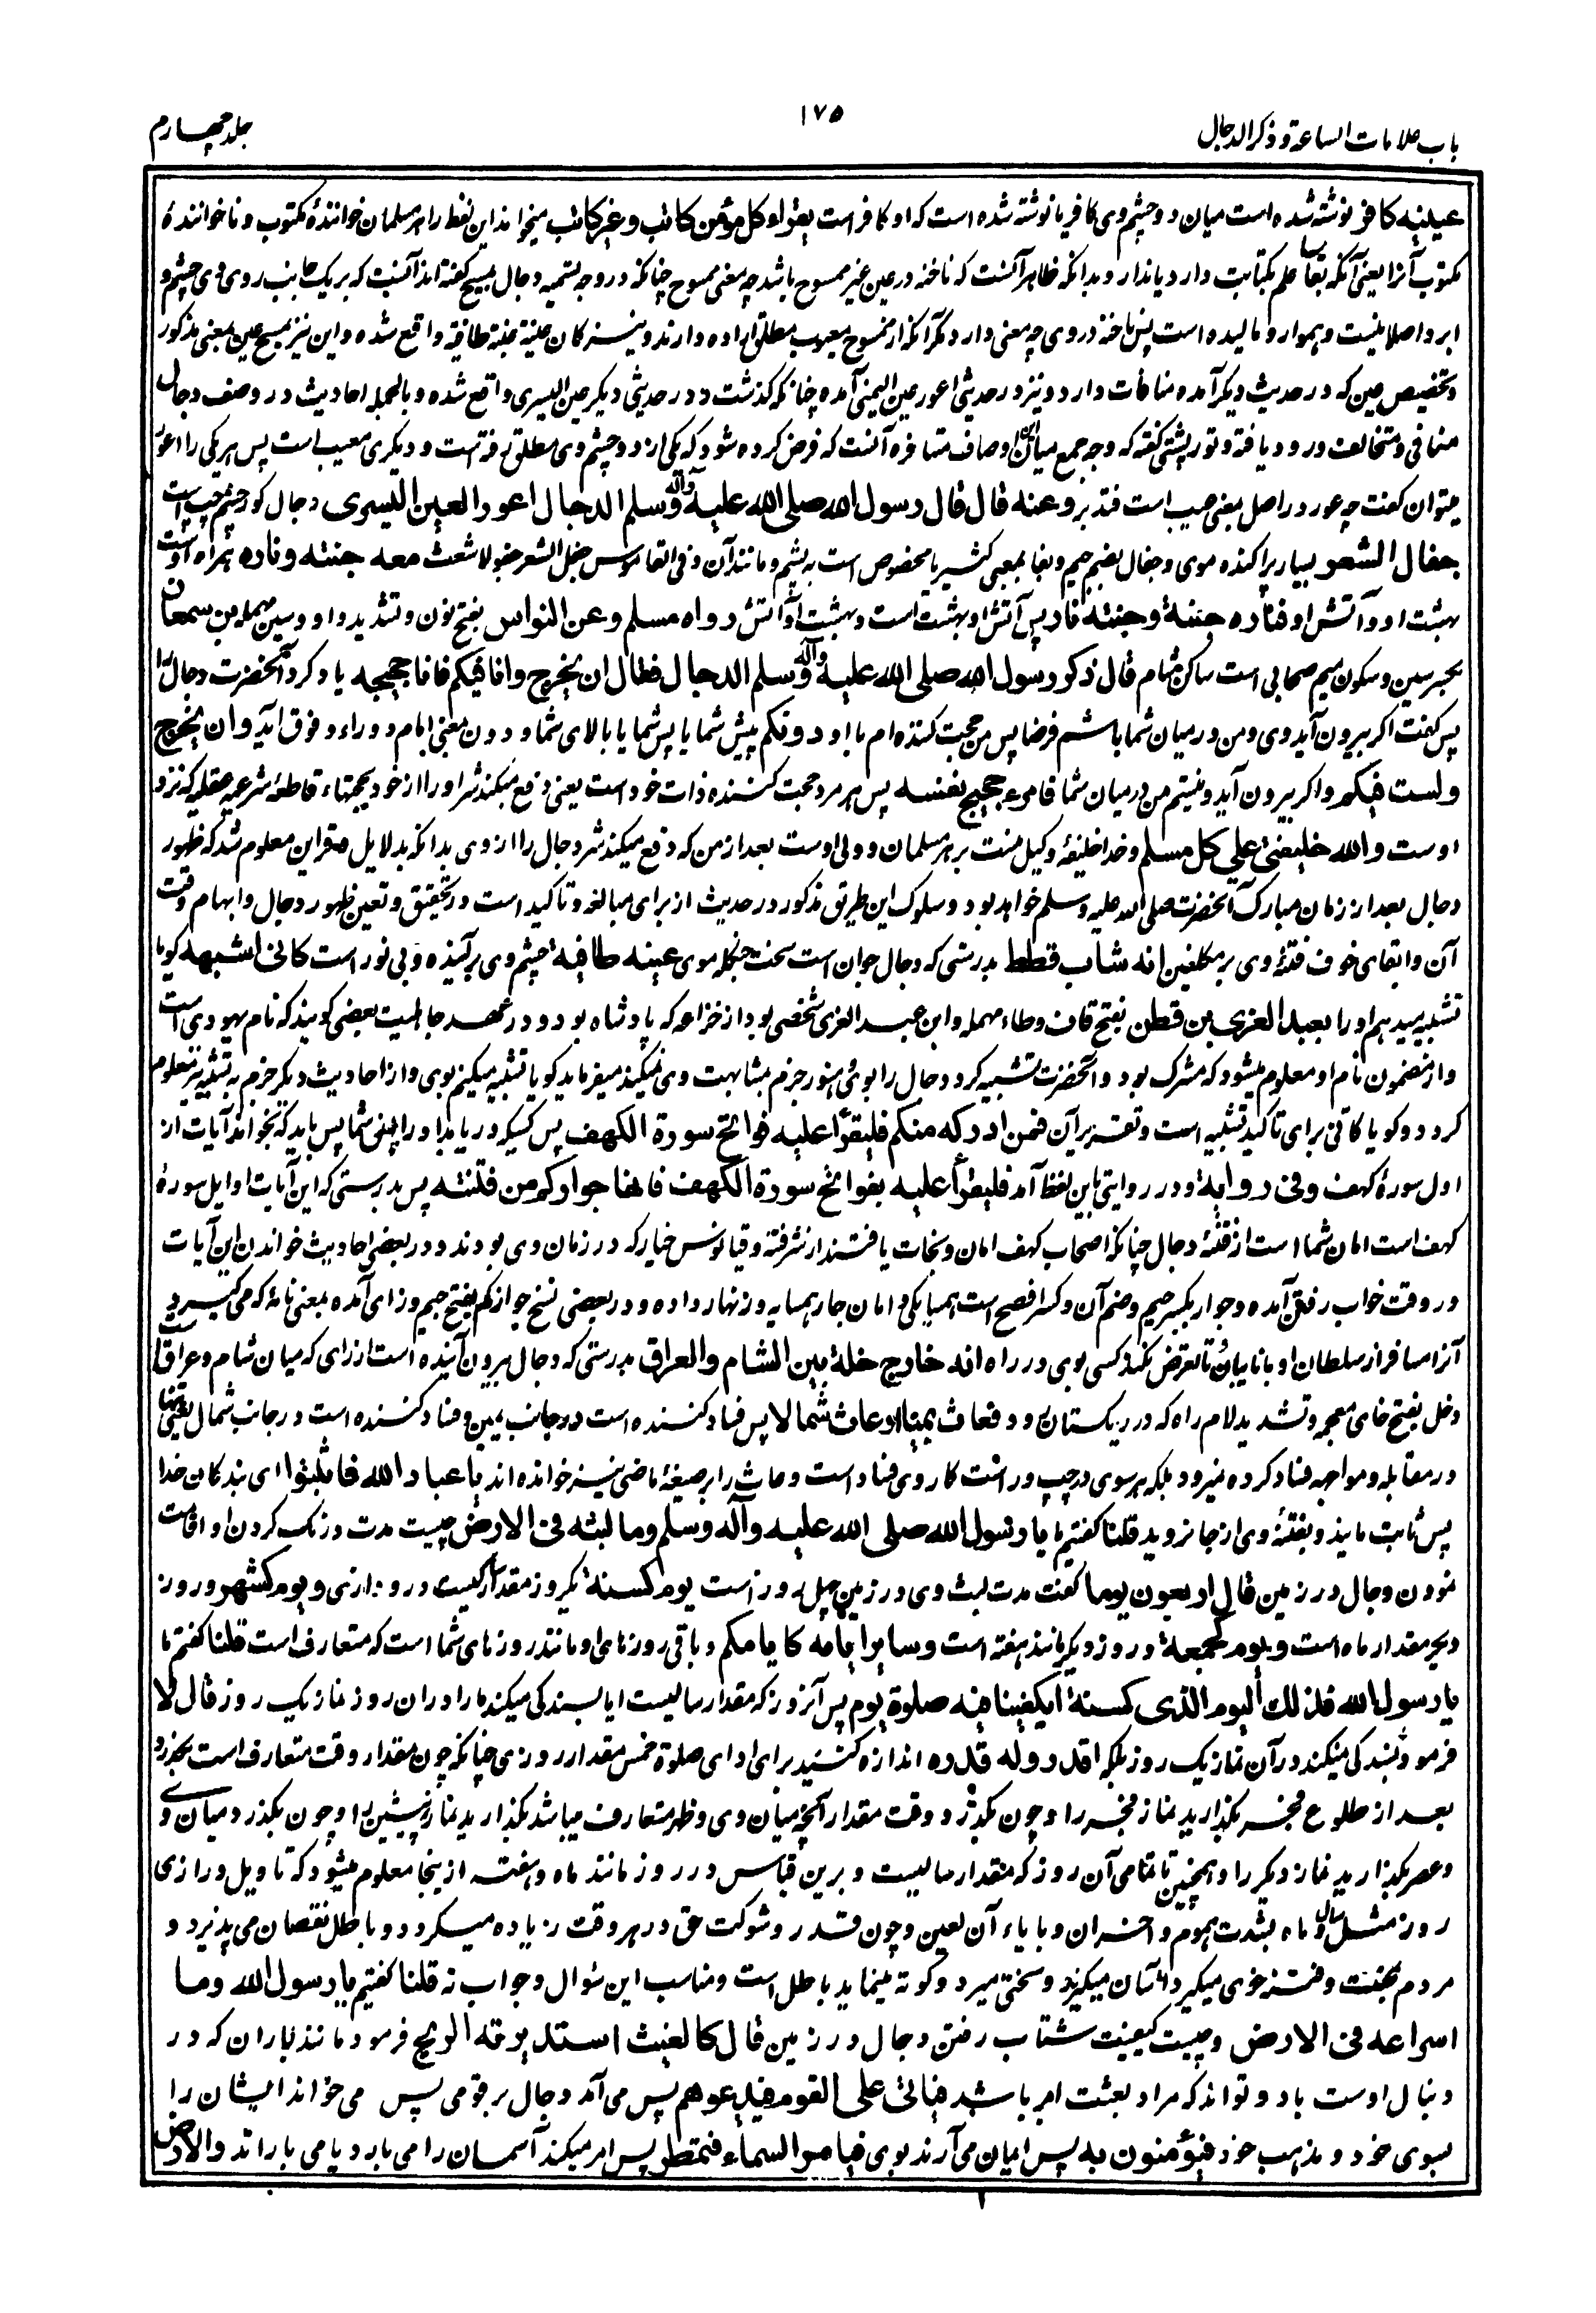 باب علامات الساعة و ذکر الدجال
۱۷۵
جلد چهارم
عینیه کافر نوشته شده است میان دو چشم وی کافر یا نوشته شده است که او کافر است یقرأه کل مؤمن کاتب و غیر کاتب میخواند این لفظ را هر مسلمان خوانندۀ مکتوب و ناخوانندۀ
مکتوب آنرا یعنی آنکه علم بکتابت دارد یا ندارد و بدانکه ظاهر آنست که ناخنه در عین غیر ممسوح باشد چه معنی ممسوح چنانکه در وجه تسمیه دجال بمسیح گفته اند آنست که بر یک جانب روی وی چشم و
ابرو اصلا نیست و هموار و مالیده است پس ناخنه در وی چه معنی دارد مگر آنکه از ممسوح معیوب مطلق اراده دارند و نیز کان عینه عنبة طافیة واقع شده و این نیز بمسح عین بمعنی مذکور
و تخصیص عین که در حدیث دیگر آمده منافات دارد و نیز در حدیثی اعور عین الیمنی آمده چنانکه گذشت و در حدیثی دیگر عین الیسری واقع شده و بالجمله احادیث در وصف دجال
متنافی و متخالف ورود یافته و تورپشتی گفته که وجه جمع میان این اوصاف متنافره آنست که فرض کرده شود که یکی از دو چشم وی مطلق رفته است و دیگری معیب است پس هر یکی را اعور
میتوان گفت چه عور در اصل بمعنی عیب است فتدبر و عنه قال قال رسول الله صلی الله علیه وآله وسلم الدجال اعور العین الیسری دجال کور چشم چپ است
جفال الشعر بسیار پراکنده موی و جفال بضم جیم و بفا بمعنی کثیر یا مخصوص است به پشم و مانند آن و فی القاموس جفل الشعر جفولا شعث معه جنته و ناره همراه اوست
بهشت او و آتش او فناره جنة و جنته نار پس آتش او بهشت است و بهشت او آتش رواه مسلم و عن النواس بفتح نون و تشدید واو و سین مهمله بن سمعان
بکسر سین و سکون میم صحابی است ساکن شام قال ذکر رسول الله صلی الله علیه وآله وسلم الدجال فقال ان یخرج و انا فیکم فانا حجیجه یاد کرد آنحضرت دجال را
پس گفت اگر بیرون آید وی و من در میان شما باشم فرضا پس من حجت کننده ام با او دونکم پیش شما یا پس شما یا بالای شما و دون بمعنی امام و وراء و فوق آید و ان یخرج
و لست فیکم و اگر بیرون آید و نیستم من در میان شما فامرء حجیج نفسه پس هر مرد حجت کننده ذات خود است یعنی دفع میکند شر او را از خود بحجتهاء قاطعۀ شرعیه عقلیه که نزد
اوست و الله خلیفتی علی کل مسلم و خدا خلیفۀ وکیل منست بر هر مسلمان و ولی اوست بعد از من که دفع میکند شر دجال را از وی بدانکه بدلایل و قراین معلوم شد که ظهور
دجال بعد از زمان مبارک آنحضرت صلی الله علیه وسلم خواهد بود و سلوک این طریق مذکور در حدیث از برای مبالغه و تاکید است در تحقیق و تعیین ظهور دجال و ابهام وقت
آن و ابقای خوف فتنۀ وی بر مکلفین انه شاب قطط بدرستی که دجال جوان است سخت جنگله موی عینه طافیة چشم وی برآینده و بی نور است کانی اشبهه گویا
تشبیه میدهم او را بعبد العزی بن قطن بفتح قاف و طاء مهمله و ابن عبد العزی شخصی بود از خزاعه که پادشاه بود و در عهد جاهلیت بعضی گویند که نام یهودی است
و از مضمون نام او معلوم میشود که مشرک بود و آنحضرت تشبیه کرد دجال را بوی هنوز جزم بمشابهت وی نمیکند میفرماید گویا تشبیه میکنم بوی و از احادیث دیگر جزم به تشبیه نیز معلوم
گردد و گویا کانی برای تاکید تشبیه است و تقریر آن فمن ادرکه منکم فلیقرأ علیه فواتح سورة الکهف پس کسیکه دریابد او را پس شما پس باید که بخواند آیات از
اول سورۀ کهف و فی روایة و در روایتی باین لفظ آمد فلیقرأ علیه بفواتح سورة الکهف فانها جوارکم من فتنته پس بدرستی که این آیات اوایل سورۀ
کهف است امان شما است از فتنۀ دجال چنانکه اصحاب کهف امان و نجات یافتند از شر فتنه دقیانوس جبار که در زمان وی بودند و در بعضی احادیث خواندن این آیات
در وقت خواب رفتن آمده و جوار بکسر جیم و ضم آن و کسر افصح است همسایگی و امان جار همسایه و زنهار داده و در بعضی نسخ جوازکم بفتح جیم و زای آمده بمعنی نامۀ که می گیرد
آنرا مسافر از سلطان او یا نایبان تا تعرض نکند کسی بوی در راه انه خارج خلة بین الشام و العراق بدرستی که دجال بیرون آینده است از راهی که میان شام و عراق است
و خل بفتح خای معجمه و تشدید لام راه که در ریگستان رود فعاث یمینا و عاث شمالا پس فساد کننده است در جانب یمین و فساد کننده است در جانب شمال یعنی تنها
در مقابله و مواجهه فساد کرده نمیرود بلکه هر سوی در چپ و راست کار وی فساد است و عاث را بر صیغۀ ماضی نیز خوانده اند یا عباد الله فاثبتوا ای بندگان خدا
پس ثابت مانید و بفتنۀ وی از جا نروید قلنا گفتیم ما یا رسول الله صلی الله علیه وآله وسلم و ما لبثه فی الارض چیست مدت درنگ کردن او و اقامت
نمودن دجال در زمین قال اربعون یوما گفت مدت لبث وی در زمین چهل روز است یوم کسنة یکروز مقدار یکسالست در درازی و یوم کشهر و روز
دیگر مقدار ماه است و یوم کجمعة و روز دیگر مانند هفته است و سایر ایامه کایامکم و باقی روزهای او مانند روزهای شما است که متعارف است قلنا گفتیم ما
یا رسول الله فذلک الیوم الذی کسنة ایکفینا فیه صلوة یوم پس آنروز که مقدار سالیست ایا بسندگی میکند ما را در ان روز نماز یک روز قال لا
فرمود بسندگی نمیکند در آن نماز یک روز بلکه اقدروا له قدره اندازه کنید برای ادای صلوة خمس مقدار روزی چنانکه چون مقدار وقت متعارف است بگذرد
بعد از طلوع فجر بگذارید نماز فجر را و چون بگذرد وقت مقدار آنچه میان وی و ظهر متعارف میباشد بگذارید نماز پیشین را و چون بگذرد میان وی
و عصر بگذارید نماز دیگر را و همچنین تا تمامی آن روز که مقدار سالیست و برین قیاس در روز مانند ماه و هفته ازینجا معلوم میشود که تاویل درازی
روز مثل سال و ماه بشدت هموم و احزان و بایاء آن لعین و چون قدر و شوکت حق در هر وقت زیاده میگردد و باطل نقصان می پذیرد و
مردم بمحنت و فتنه خوی میگیرد و آسان میگیرد و سختی میرد و کوته مینماید باطل است و مناسب این سوال و جواب نه قلنا گفتیم یا رسول الله و ما
اسراعه فی الارض و چیست کیفیت شتاب رفتن دجال در زمین قال کالغیث استدبرته الریح فرمود مانند باران که در
دنبال اوست باد و تواند که مراد بغیث ابر باشد فیاتی علی القوم فیدعوهم پس می آمد دجال بر قومی پس می خواند ایشان را
بسوی خود و مذهب خود فیؤمنون به پس ایمان می آرند بوی فیامر السماء فتمطر پس امر میکند آسمان را می بارد یا می باراند و الارض